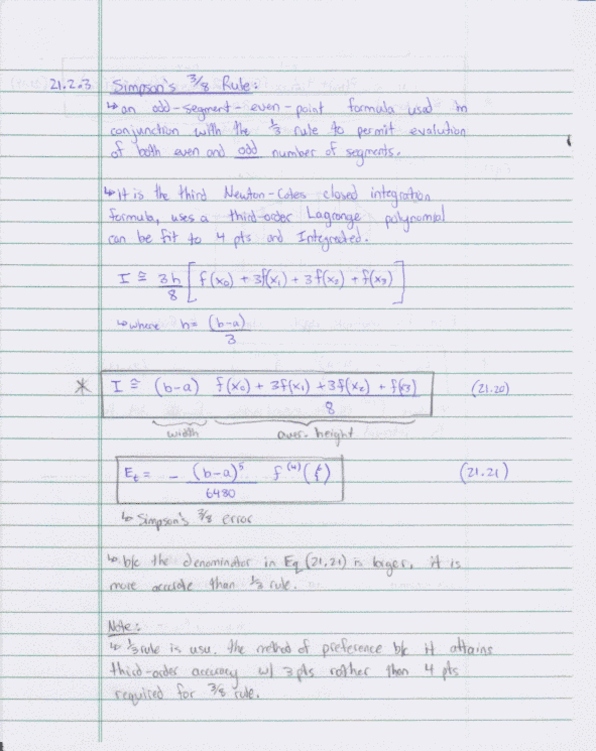 21.2.3 Simpson's 3/8 Rule:
↳ an odd-segment-even-point formula used in
conjunction with the 1/3 rule to permit evalution
of both even and odd number of segments.
↳ It is the third Newton-Cotes closed integration
formula, uses a third-order Lagrange polynomial
can be fit to 4 pts and Integrated.
I ≅ 3h/8 [f(x₀) + 3f(x₁) + 3f(x₂) + f(x₃)]
↳ where h = (b-a)/3
* I ≅ (b-a) f(x₀) + 3f(x₁) + 3f(x₂) + f(x3)/8 (21.20)
width aver. height
Eₜ = - (b-a)⁵/6480 f⁽⁴⁾(ξ) (21.21)
↳ Simpson's 3/8 error
↳ b/c the denominator in Eq (21.21) is larger, it is
more accurate than 1/3 rule.
Note:
↳ 1/3 rule is usu. the method of preference b/c it attains
third-order accuracy w/ 3 pts rather than 4 pts
required for 3/8 rule.